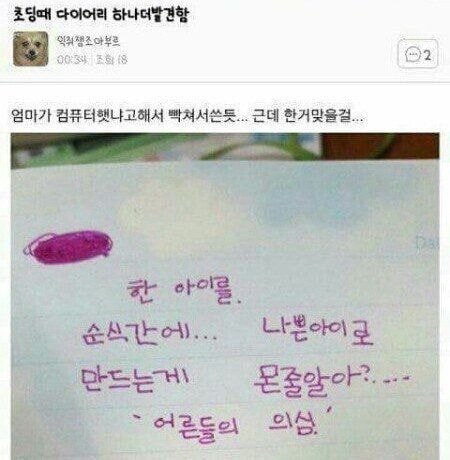 초딩때 다이어리 하나더발견함
익쥐잼조아부르
00:34 | 조회 18
2
엄마가 컴퓨터햇냐고해서 빡쳐서쓴듯... 근데 한거맞을걸...
Dat
한 아이를.
순식간에... 나쁜아이로
만드는게 몬줄알아?....
`어른들의 의심.'